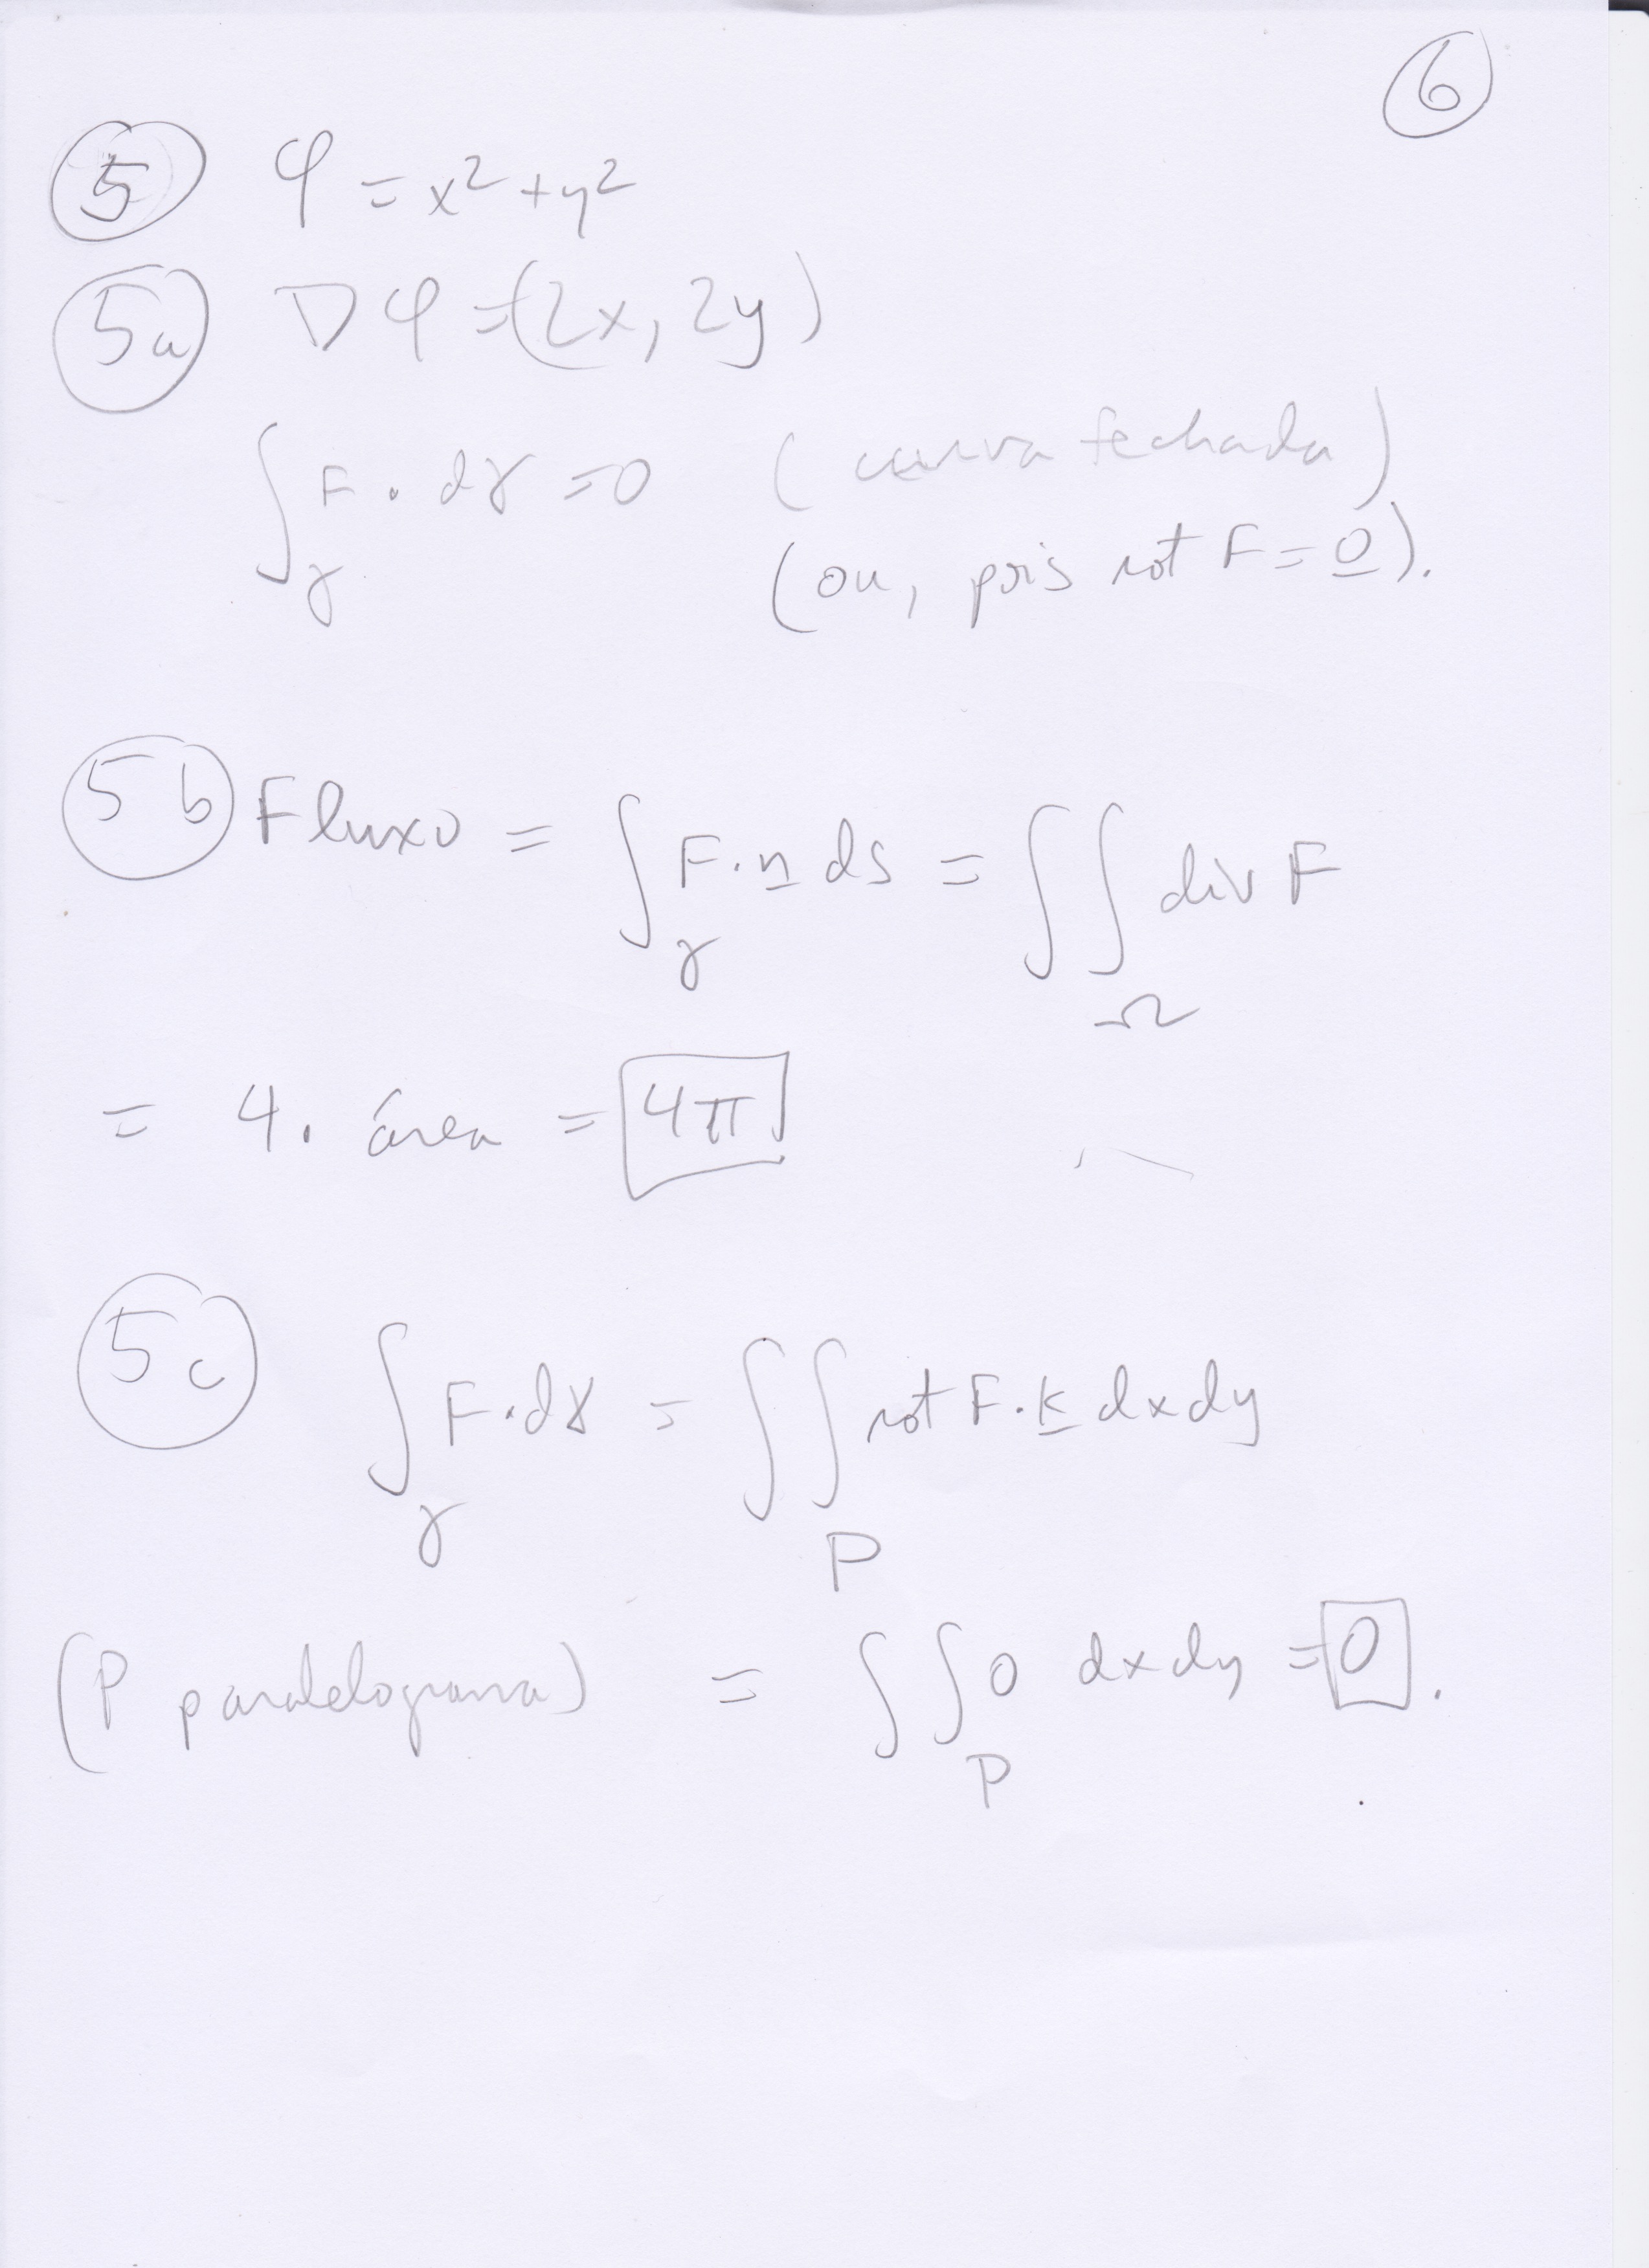 6
5 φ = x² + y²
5a ∇φ = (2x, 2y)
∫_γ F . dγ = 0 (curva fechada)
(ou, pois rot F = 0).
5b Fluxo = ∫_γ F . n ds = ∫∫_Ω div F
= 4 . área = 4π
5c ∫_γ F . dγ = ∫∫_P rot F . k dx dy
(P paralelograma) = ∫∫_P 0 dx dy = 0 .